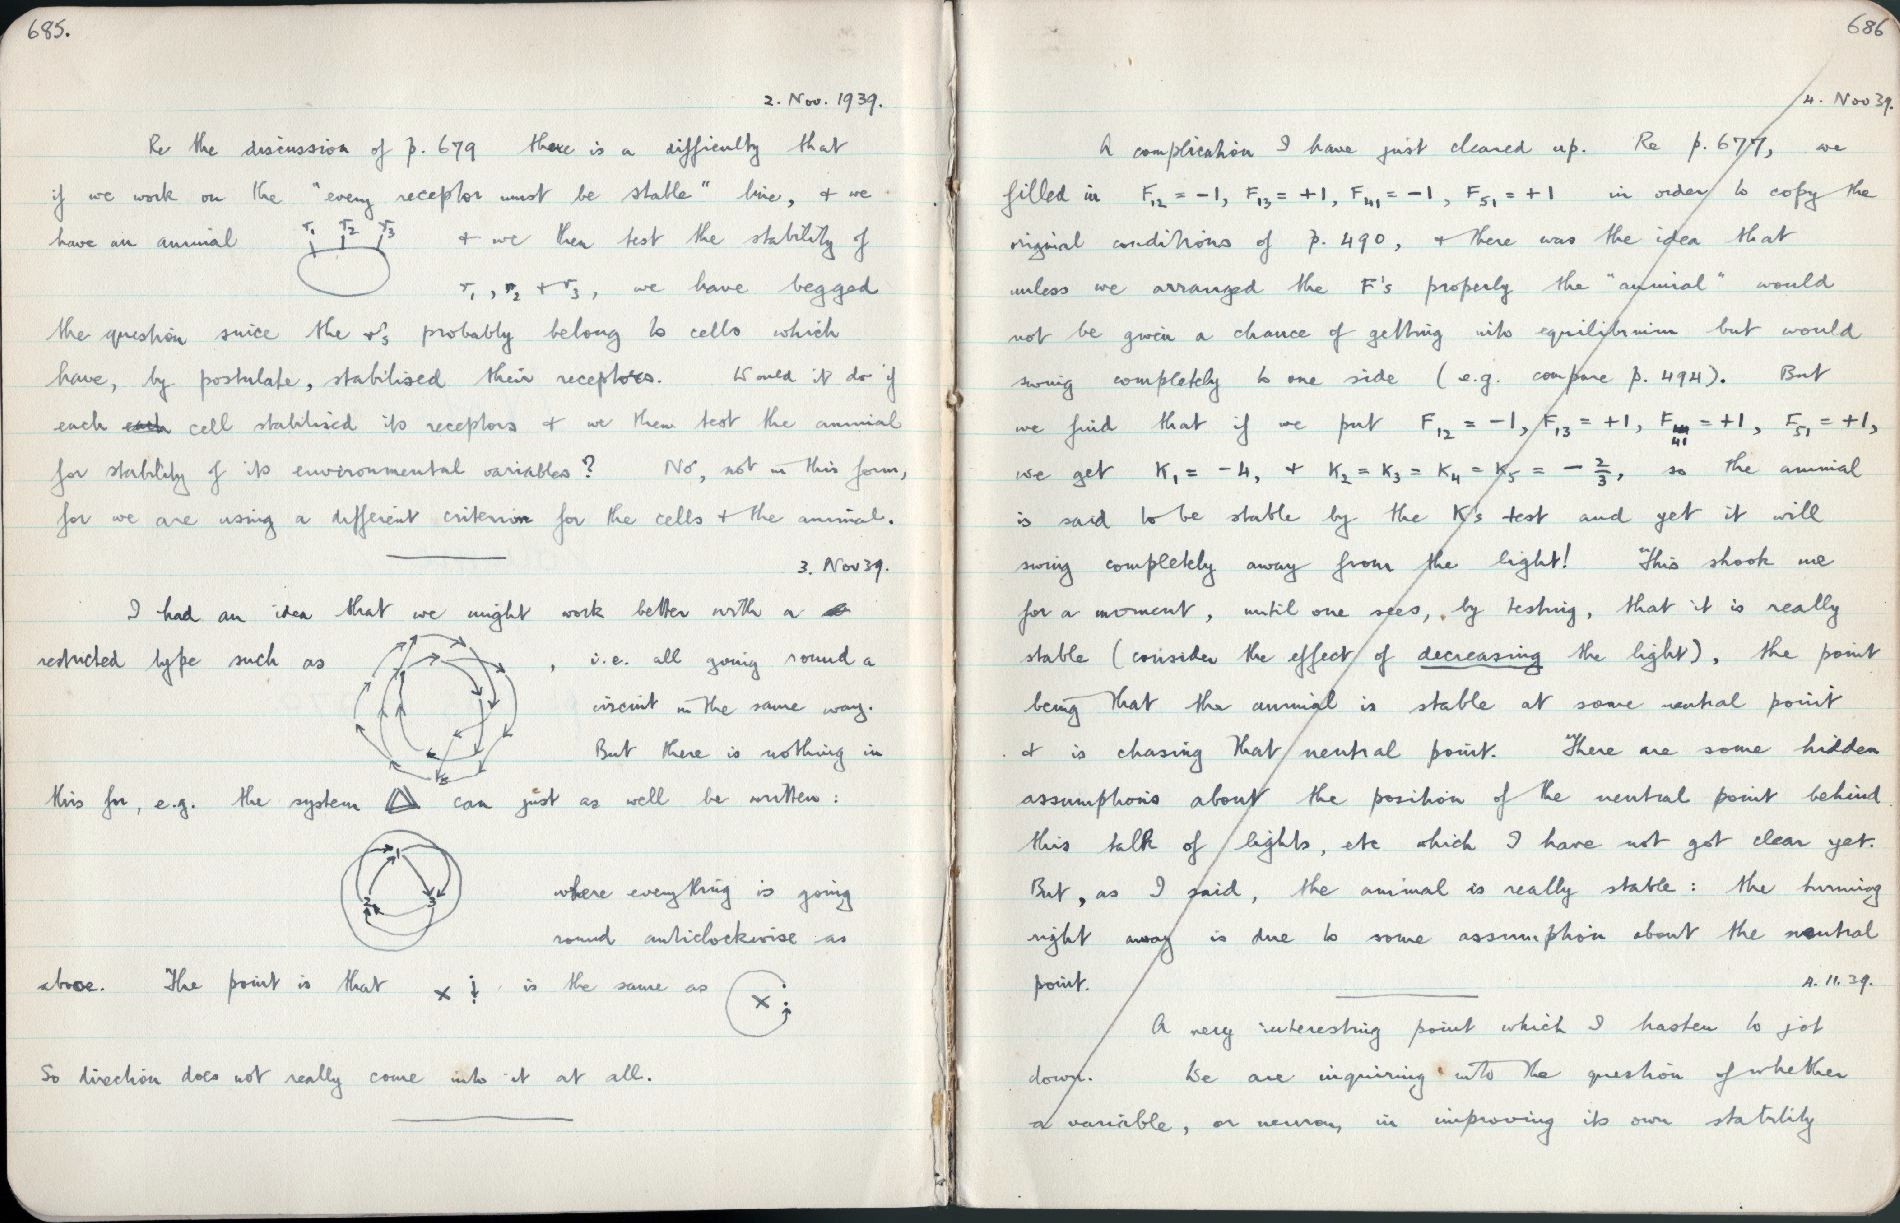 685.
2. Nov. 1939.
Re the discussion of p. 679 there is a difficulty that
if we work on the "every receptor must be stable" line, + we
have an animal r₁ r₂ r₃ + we then test the stability of
r₁, r₂ + r₃, we have begged
the question since the r's probably belong to cells which
have, by postulate, stabilised their receptors. Would it do if
each each cell stabilised its receptors + we then test the animal
for stability of its environmental variables? No, not in this form,
for we are using a different criterion for the cells + the animal.
3. Nov 39.
I had an idea that we might work better with a
restricted type such as , i.e. all going round a
circuit in the same way.
But there is nothing in
this for, e.g. the system can just as well be written:
1 2 3
where everything is going
round anticlockwise as
above. The point is that x is the same as x
So direction does not really come into it at all.
686
4. Nov 39.
A complication I have just cleared up. Re p. 677, we
filled in F₁₂ = -1, F₁₃ = +1, F₄₁ = -1, F₅₁ = +1 in order to copy the
original conditions of p. 490, + there was the idea that
unless we arranged the F's properly the "animal" would
not be given a chance of getting into equilibrium but would
swing completely to one side (e.g. compare p. 494). But
we find that if we put F₁₂ = -1, F₁₃ = +1, F₄₁ = +1, F₅₁ = +1,
we get K₁ = -4, + K₂ = K₃ = K₄ = K₅ = - 2/3, so the animal
is said to be stable by the K's test and yet it will
swing completely away from the light! This shook me
for a moment, until one sees, by testing, that it is really
stable (consider the effect of decreasing the light), the point
being that the animal is stable at some neutral point
+ is chasing that neutral point. There are some hidden
assumptions about the position of the neutral point behind
this talk of lights, etc which I have not got clear yet.
But, as I said, the animal is really stable: the turning
right away is due to some assumption about the neutral
point.
4. 11. 39.
A very interesting point which I hasten to jot
down. We are inquiring into the question of whether
a variable, or neuron, in improving its own stability